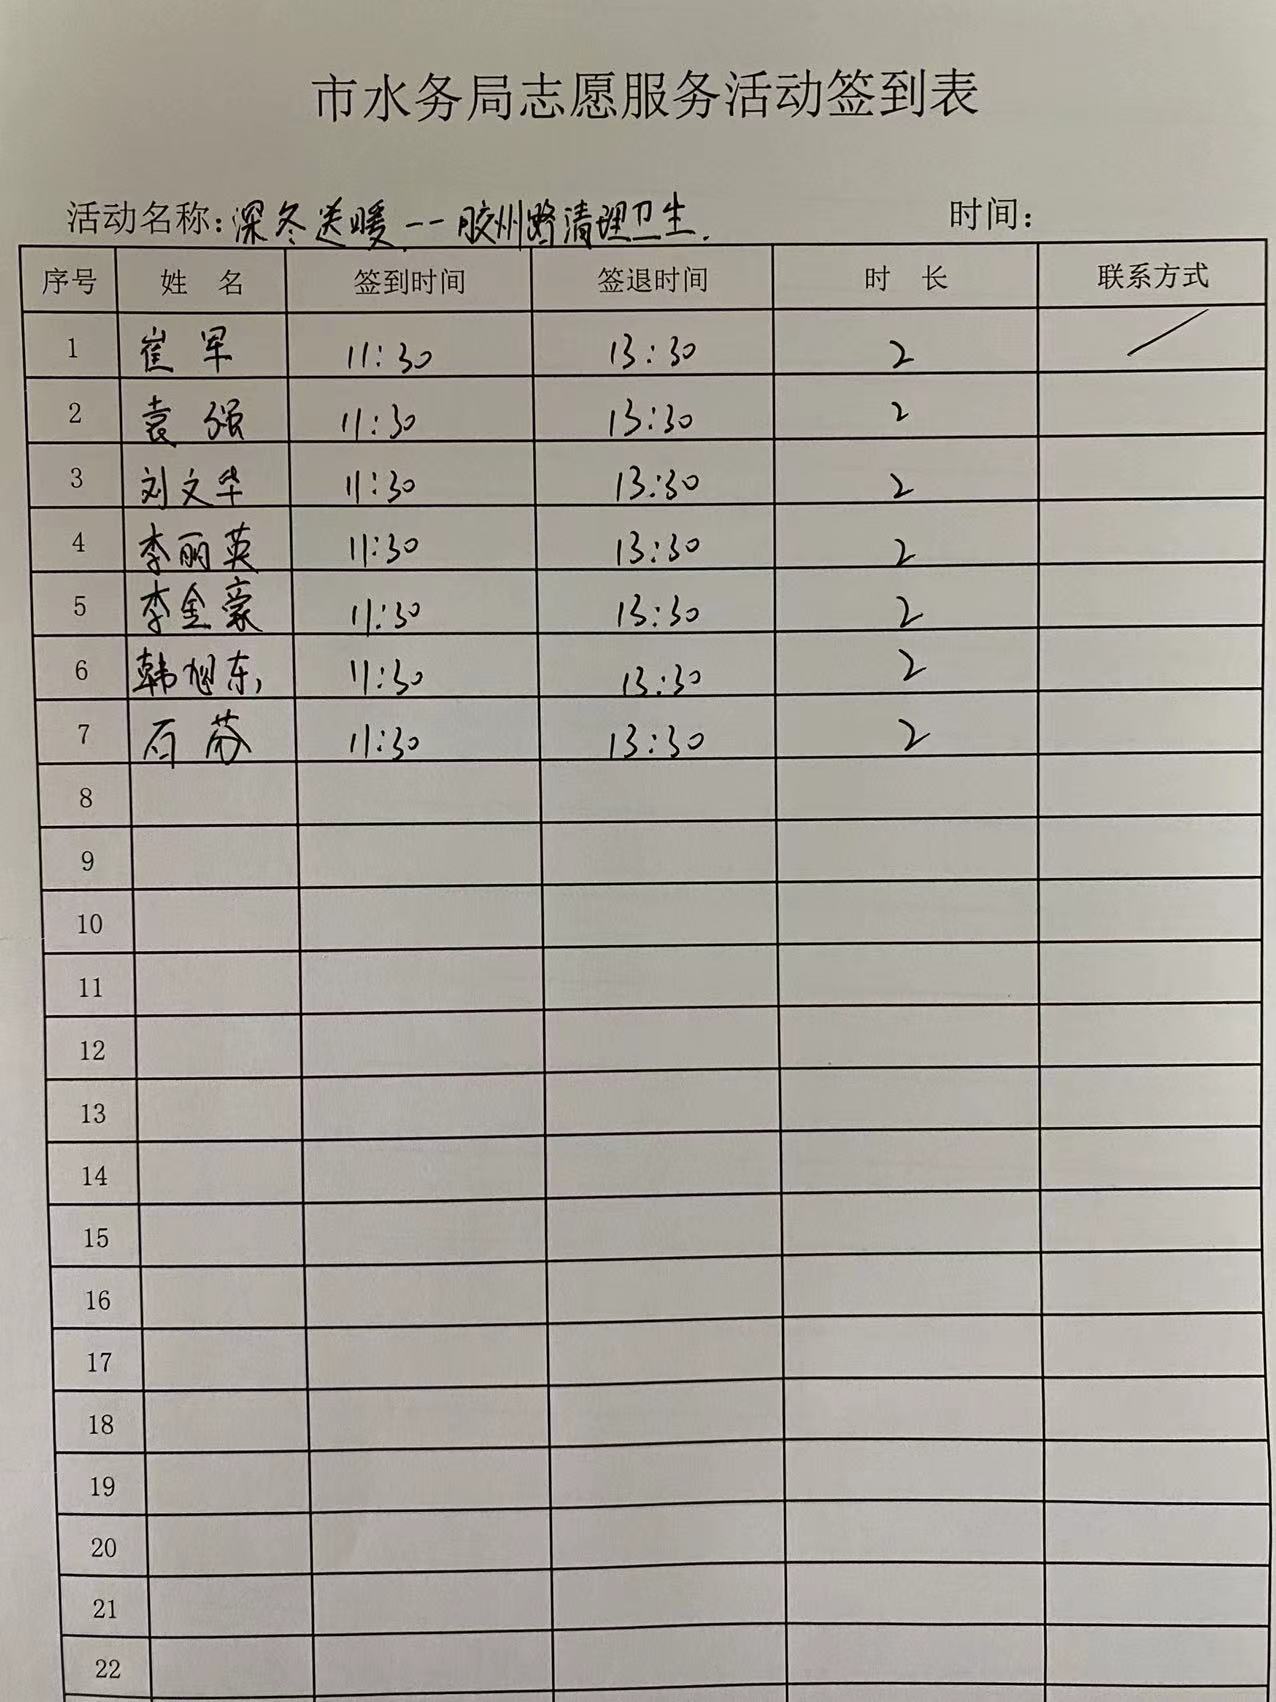 市水务局志愿服务活动签到表
活动名称:深冬送暖--胶州路清理卫生. 时间:
序号 姓 名 签到时间 签退时间 时 长 联系方式
1 崔军 11:30 13:30 2 /
2 袁强 11:30 13:30 2
3 刘文华 11:30 13:30 2
4 李丽英 11:30 13:30 2
5 李金豪 11:30 13:30 2
6 韩旭东 11:30 13:30 2
7 石芬 11:30 13:30 2
8
9
10
11
12
13
14
15
16
17
18
19
20
21
22